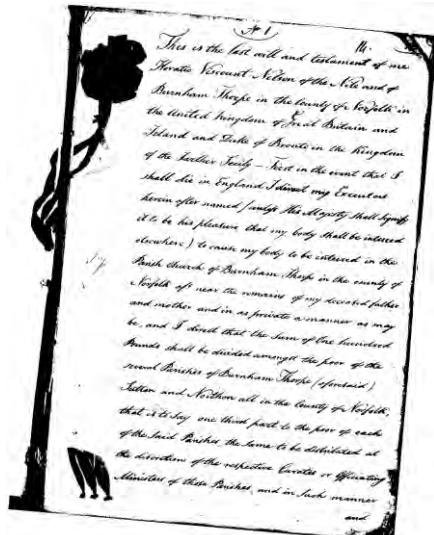 No 1
14.
This is the last will and testament of me
Horatio Viscount Nelson of the Nile and of
Burnham Thorpe in the County of Norfolk in
the United Kingdom of Great Britain and
Ireland and Duke of Bronte in the Kingdom
of the further Sicily — First in the event that I
shall die in England I direct my Executors
herein after named (unless His Majesty shall signify
it to be his pleasure that my body shall be interred
elsewhere) to cause my body to be interred in the
Parish Church of Burnham Thorpe in the county of
Norfolk near the remains of my deceased father
and mother and in as private a manner as may
be, and I direct that the Sum of One hundred
Pounds shall be divided amongst the poor of the
several Parishes of Burnham Thorpe (aforesaid)
Sutton and Norton all in the County of Norfolk,
that is to say one third part to the poor of each
of the Said Parishes the Same to be distributed at
the discretion of the respective Curates or Officiating
Ministers of those Parishes, and in Such manner
and